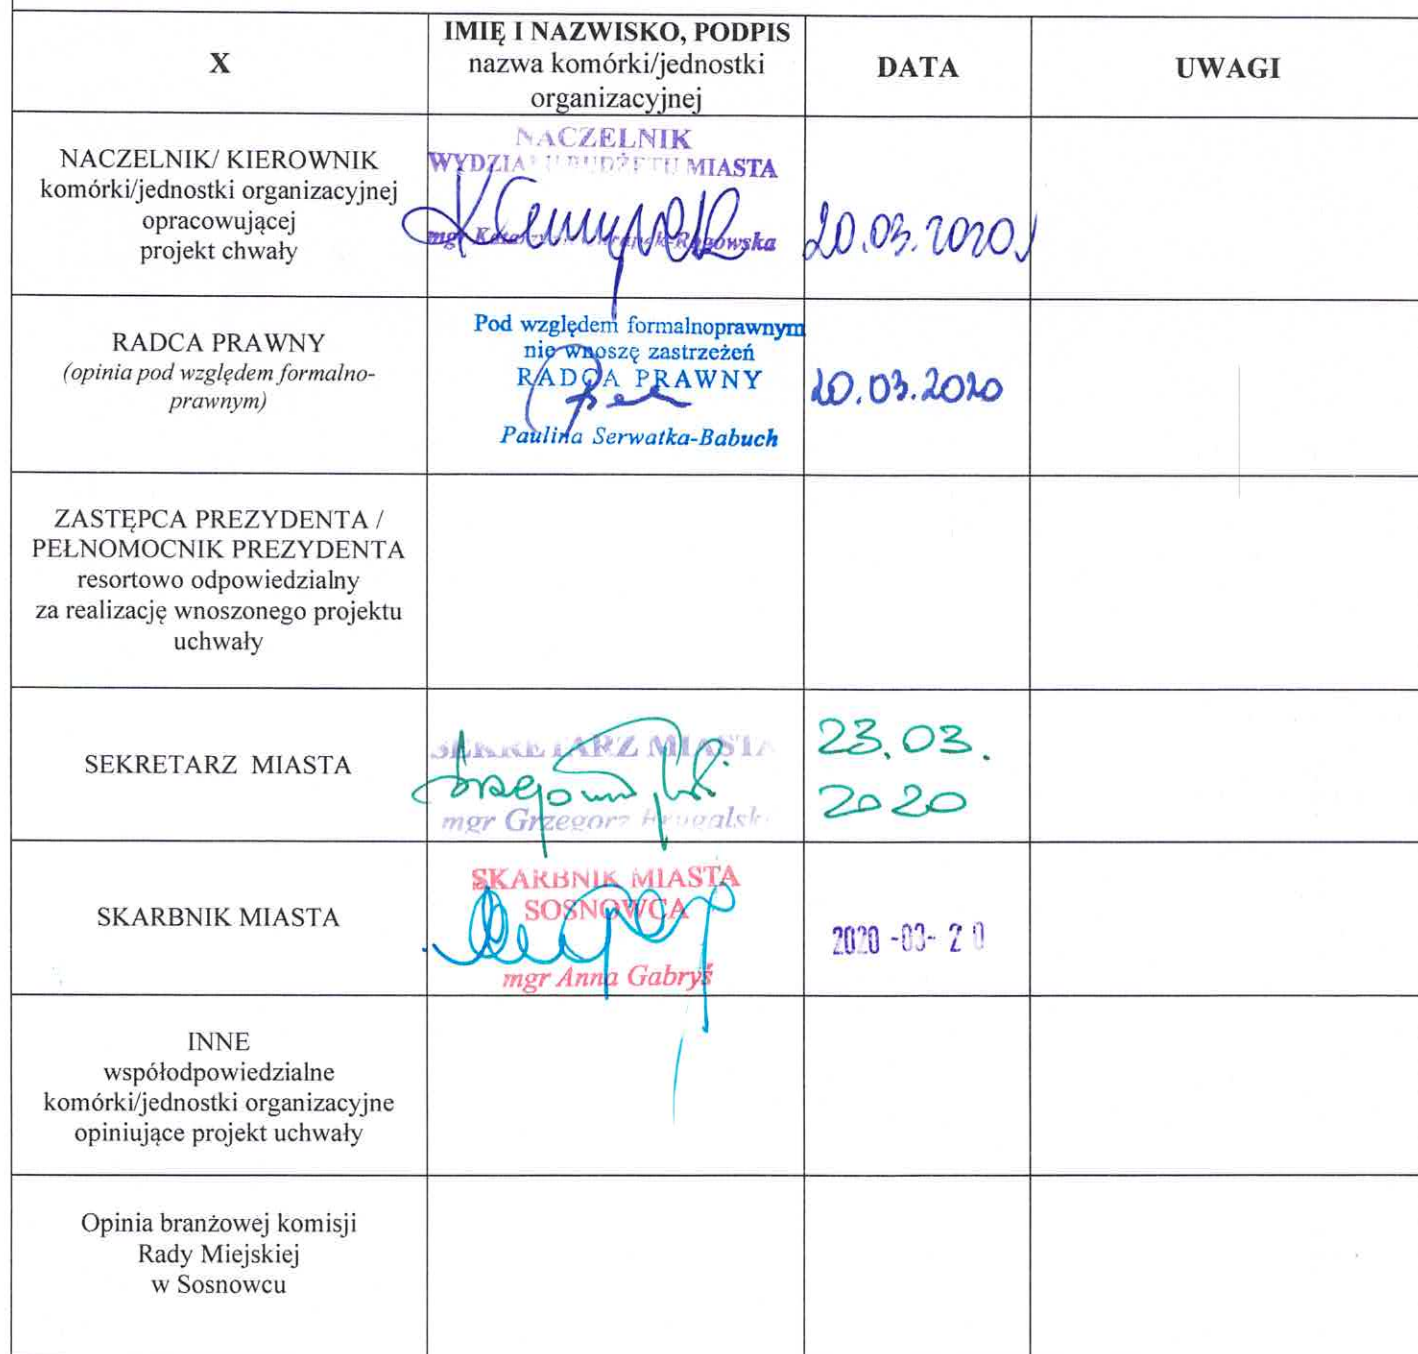 X
IMIĘ I NAZWISKO, PODPIS
nazwa komórki/jednostki
organizacyjnej
DATA
UWAGI
NACZELNIK/ KIEROWNIK
komórki/jednostki organizacyjnej
opracowującej
projekt chwały
NACZELNIK
WYDZIAŁU BUDŻETU MIASTA
mgr
20.03.2020
RADCA PRAWNY
(opinia pod względem formalno-
prawnym)
Pod względem formalnoprawnym
nie wnoszę zastrzeżeń
RADCA PRAWNY
Paulina Serwatka-Babuch
20.03.2020
ZASTĘPCA PREZYDENTA /
PEŁNOMOCNIK PREZYDENTA
resortowo odpowiedzialny
za realizację wnoszonego projektu
uchwały
SEKRETARZ MIASTA
SEKRETARZ MIASTA
mgr Grzegorz
23.03.
2020
SKARBNIK MIASTA
SKARBNIK MIASTA
SOSNOWCA
mgr Anna Gabryś
2020 -03- 20
INNE
współodpowiedzialne
komórki/jednostki organizacyjne
opiniujące projekt uchwały
Opinia branżowej komisji
Rady Miejskiej
w Sosnowcu